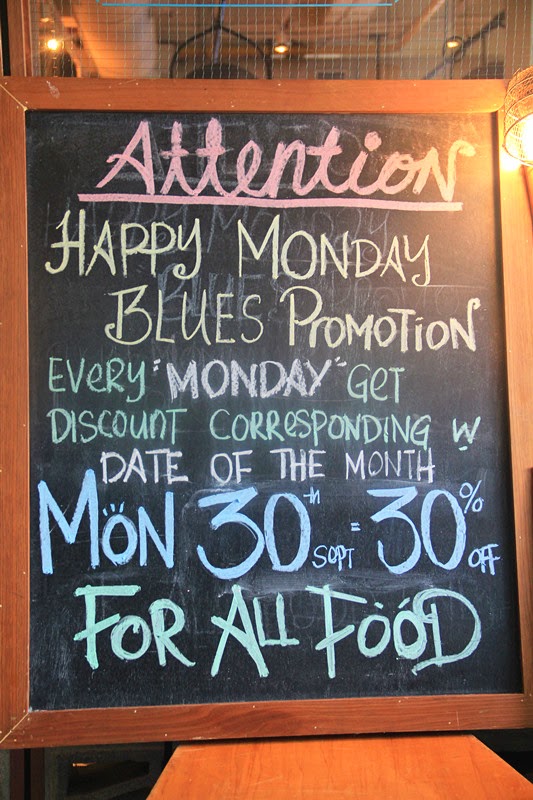 Attention
HAPPY MONDAY
BLUES PROMOTION
EVERY "MONDAY" GET
DISCOUNT CORRESPONDING W
DATE OF THE MONTH
MON 30th SEPT = 30% OFF
FOR ALL FOOD